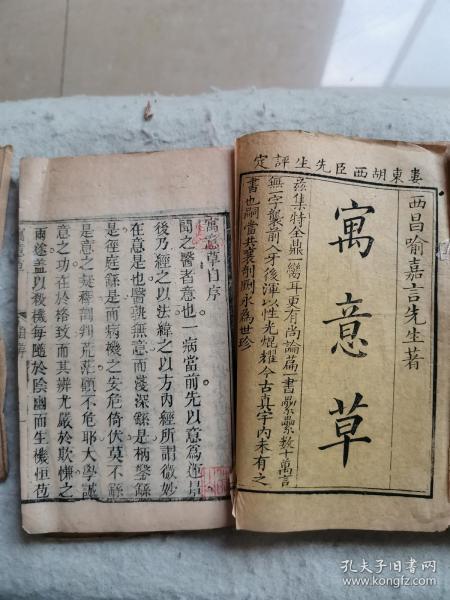 婁東胡西臣先生評定
西昌喻嘉言先生著
寓意草
茲集特全鼎一臠耳更有尚論篇一書纍纍數十萬言
無一字襲前人牙後渾以性光焜耀今古真宇內未有之
書也嗣當共襄剞劂永為世珍
寓意草自序
聞之醫者意也一病當前先以意為運量
後乃經之以法緯之以方內經所謂微妙
在意是也醫孰無意而淺深繇是枘鑿繇
是徑庭繇是而病機之安危倚伏莫不繇
是意之凝釋剖判荒茫顧不危耶大學誠
意之功在於格致而其辨尤嚴於欺慊之
兩途蓋以殺機每隨於陰幽而生機恒苞
寓意草
自序
孔夫子旧书网
www.kongfz.com